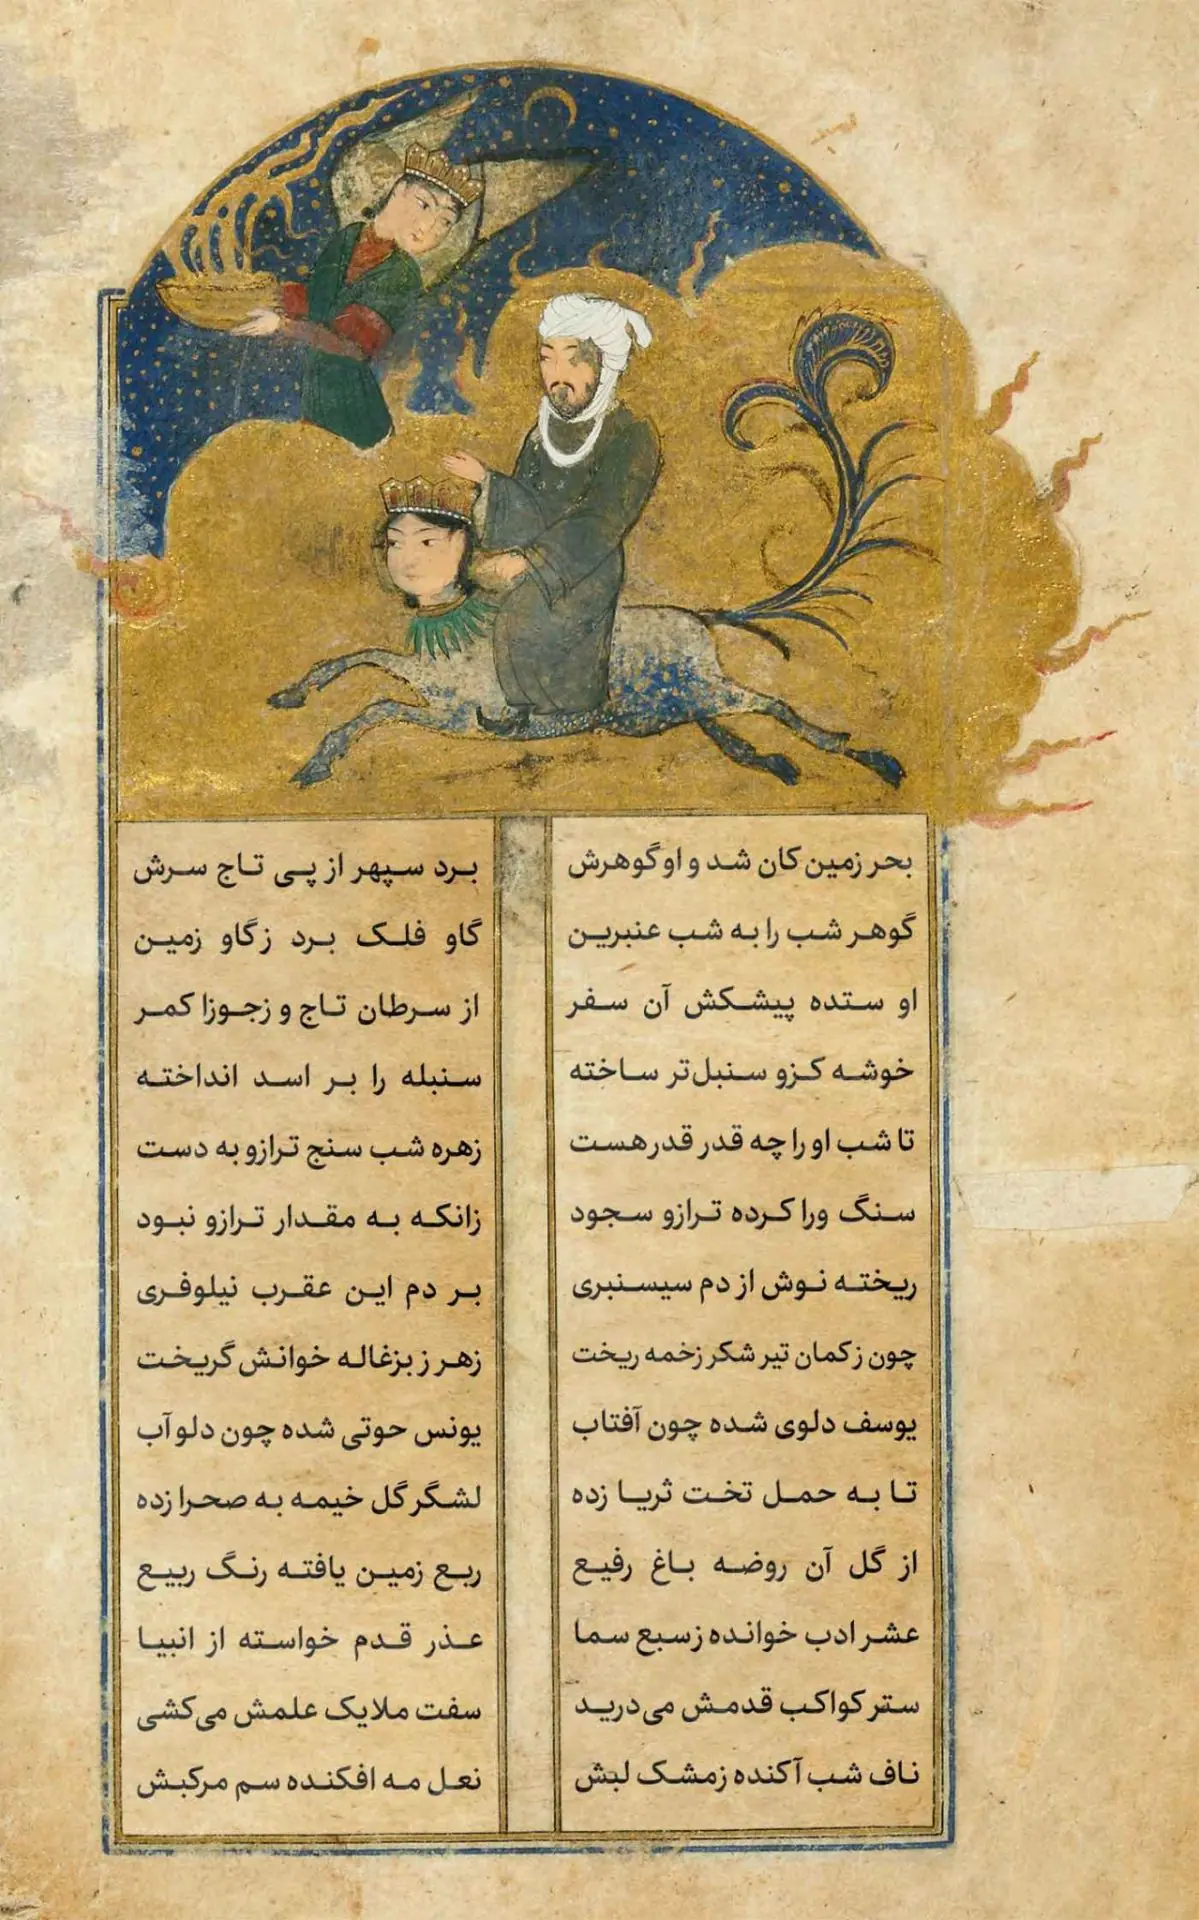 بحر زمین کان شد و او گوهرش
برد سپهر از پی تاج سرش
گوهر شب را به شب عنبرین
گاو فلک برد زگاو زمین
او ستده پیشکش آن سفر
از سرطان تاج و زجوزا کمر
خوشه کزو سنبل‌تر ساخته
سنبله را بر اسد انداخته
تا شب او را چه قدر قدر هست
زهره شب سنج ترازو به دست
سنگ ورا کرده ترازو سجود
زانکه به مقدار ترازو نبود
ریخته نوش از دم سیسنبری
بر دم این عقرب نیلوفری
چون ز کمان تیر شکر زخمه ریخت
زهر ز بزغاله خوانش گریخت
یوسف دلوی شده چون آفتاب
یونس حوتی شده چون دلو آب
تا به حمل تخت ثریا زده
لشگر گل خیمه به صحرا زده
از گل آن روضه باغ رفیع
ربع زمین یافته رنگ ربیع
عشر ادب خوانده زسبع سما
عذر قدم خواسته از انبیا
ستر کواکب قدمش می‌درید
سفت ملایک علمش می‌کشی
ناف شب آکنده زمشک لبش
نعل مه افکنده سم مرکبش